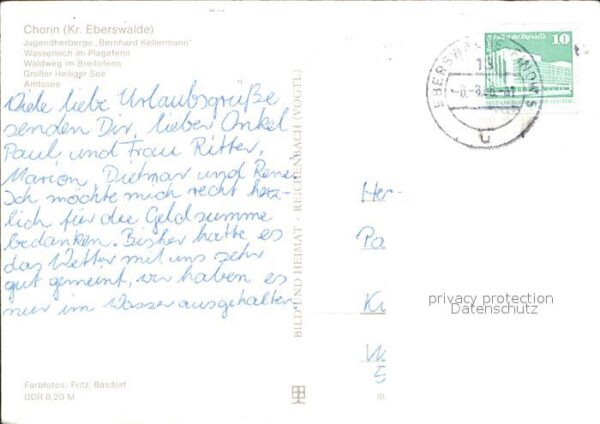 Chorin (Kr. Eberswalde)
Jugendherberge „Bernhard Kellermann"
Wasserloch im Plagefenn
Waldweg im Breitefenn
Großer Heiliger See
Amtssee
Viele liebe Urlaubsgrüße
senden Dir, lieber Onkel
Paul, und Frau Ritter,
Marion, Dietmar und Rene.
Ich möchte mich recht herz-
lich für die Geldsumme
bedanken. Bisher hatte es
das Wetter mit uns sehr
gut gemeint, wir haben es
nur im Wasser ausgehalten.
Farbfotos: Fritz, Basdorf
DDR 0,20 M
BILD UND HEIMAT · REICHENBACH (VOGTL)
10
EBERSWALDE-FINOW 5
Her-
Pa
K
W
5
privacy protection
Datenschutz